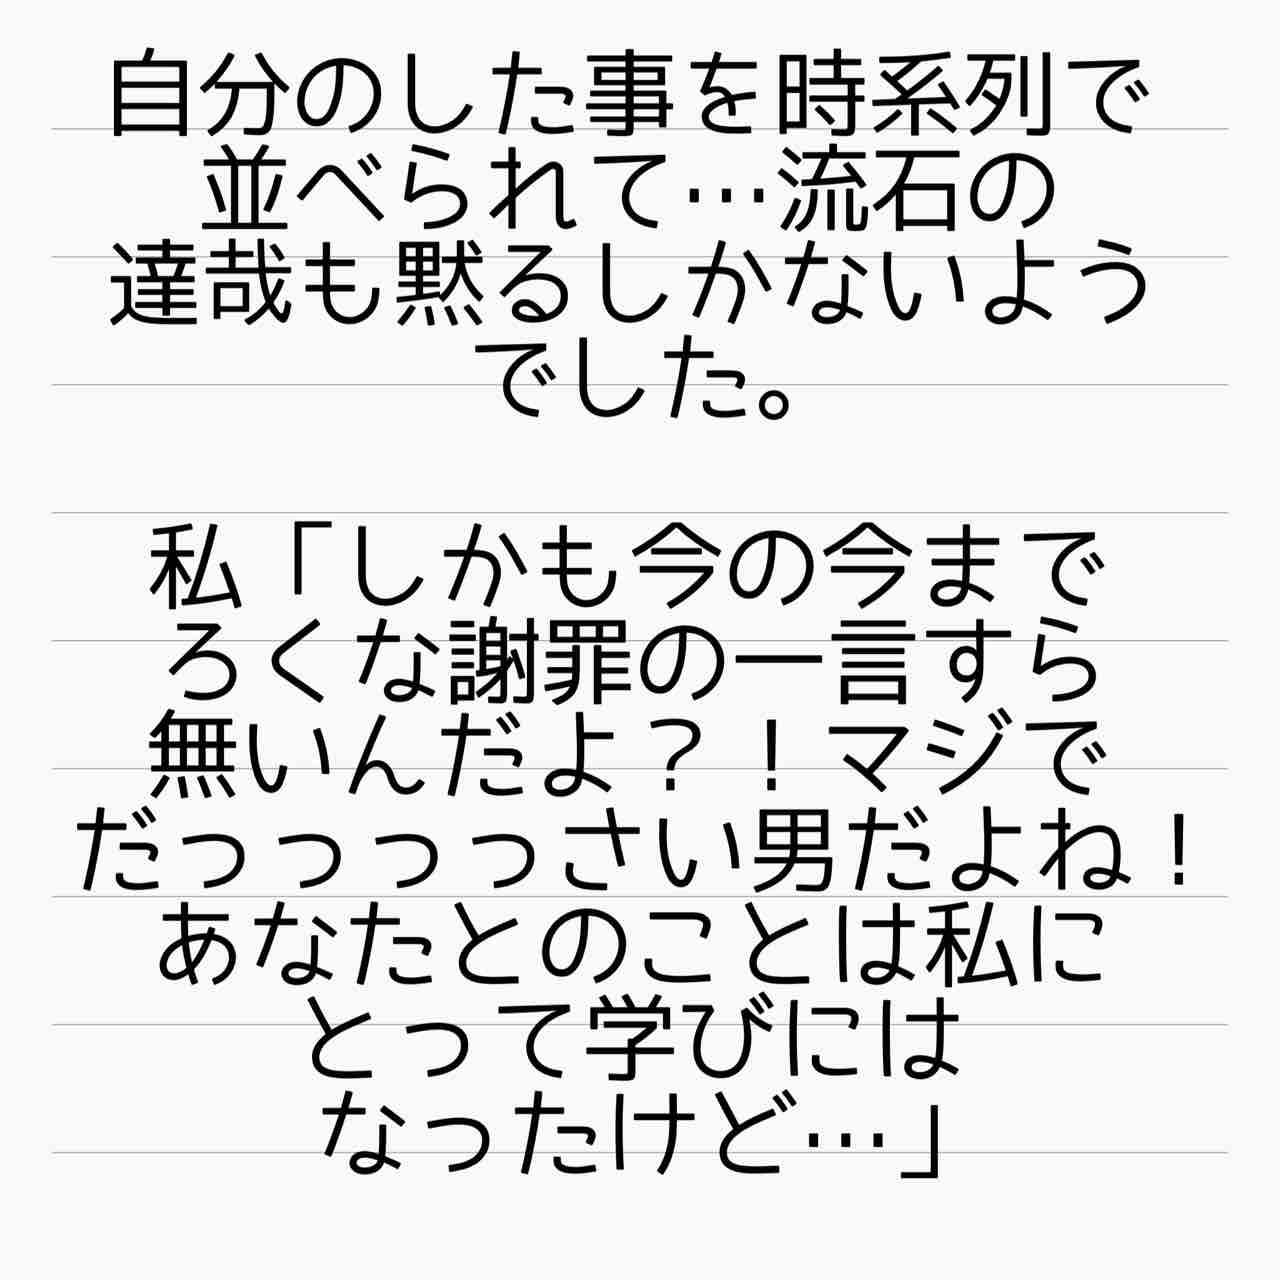 自分のした事を時系列で
並べられて…流石の
達哉も黙るしかないよう
でした。
私「しかも今の今まで
ろくな謝罪の一言すら
無いんだよ？！マジで
だっっっっさい男だよね！
あなたとのことは私に
とって学びには
なったけど…」